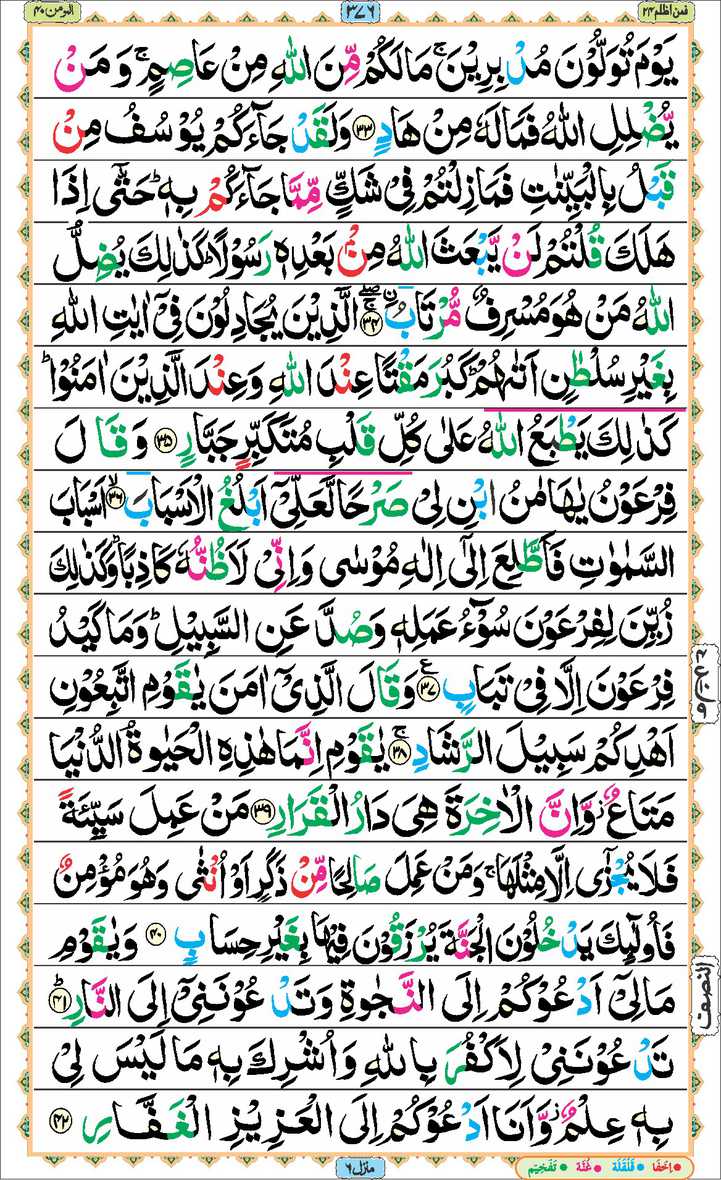 فمن اظلم ٢٤
٣٧٦
المؤمن ٤٠
يَوۡمَ تُوَلُّوۡنَ مُدۡبِرِيۡنَ ۚ مَا لَكُمۡ مِّنَ اللّٰهِ مِنۡ عَاصِمٍ ۚ وَ مَنۡ
يُّضۡلِلِ اللّٰهُ فَمَا لَهٗ مِنۡ هَادٍ ﴿۳۳﴾ وَلَقَدۡ جَآءَكُمۡ يُوۡسُفُ مِنۡ
قَبۡلُ بِالۡبَيِّنٰتِ فَمَا زِلۡتُمۡ فِىۡ شَكٍّ مِّمَّا جَآءَكُمۡ بِهٖ ؕ حَتّٰٓى اِذَا
هَلَكَ قُلۡتُمۡ لَنۡ يَّبۡعَثَ اللّٰهُ مِنۡۢ بَعۡدِهٖ رَسُوۡلًا ؕ كَذٰلِكَ يُضِلُّ
اللّٰهُ مَنۡ هُوَ مُسۡرِفٌ مُّرۡتَابُ ۨ ﴿۳۴﴾ ۚ ۖ الَّذِيۡنَ يُجَادِلُوۡنَ فِىۡۤ اٰيٰتِ اللّٰهِ
بِغَيۡرِ سُلۡطٰنٍ اَتٰٮهُمۡ ؕ كَبُرَ مَقۡتًا عِنۡدَ اللّٰهِ وَعِنۡدَ الَّذِيۡنَ اٰمَنُوۡا ؕ
كَذٰلِكَ يَطۡبَعُ اللّٰهُ عَلٰى كُلِّ قَلۡبِ مُتَكَبِّرٍ جَبَّارٍ ﴿۳۵﴾ وَقَالَ
فِرۡعَوۡنُ يٰهَامٰنُ ابۡنِ لِىۡ صَرۡحًا لَّعَلِّىۡۤ اَبۡلُغُ الۡاَسۡبَابَ ۙ ﴿۳۶﴾ اَسۡبَابَ
السَّمٰوٰتِ فَاَطَّلِعَ اِلٰٓى اِلٰهِ مُوۡسٰى وَاِنِّىۡ لَاَظُنُّهٗ كَاذِبًا ؕ وَكَذٰلِكَ
زُيِّنَ لِفِرۡعَوۡنَ سُوۡٓءُ عَمَلِهٖ وَصُدَّ عَنِ السَّبِيۡلِ ؕ وَمَا كَيۡدُ
فِرۡعَوۡنَ اِلَّا فِىۡ تَبَابٍ ﴿۳۷﴾ ع وَقَالَ الَّذِىۡۤ اٰمَنَ يٰقَوۡمِ اتَّبِعُوۡنِ
اَهۡدِكُمۡ سَبِيۡلَ الرَّشَادِ ۚ ﴿۳۸﴾ يٰقَوۡمِ اِنَّمَا هٰذِهِ الۡحَيٰوةُ الدُّنۡيَا
مَتَاعٌ ؗ وَّاِنَّ الۡاٰخِرَةَ هِىَ دَارُ الۡقَرَارِ ﴿۳۹﴾ مَنۡ عَمِلَ سَيِّئَةً
فَلَا يُجۡزٰٓى اِلَّا مِثۡلَهَا ۚ وَمَنۡ عَمِلَ صَالِحًا مِّنۡ ذَكَرٍ اَوۡ اُنۡثٰى وَهُوَ مُؤۡمِنٌ
فَاُولٰٓئِكَ يَدۡخُلُوۡنَ الۡجَنَّةَ يُرۡزَقُوۡنَ فِيۡهَا بِغَيۡرِ حِسَابٍ ﴿۴۰﴾ وَيٰقَوۡمِ
مَا لِىۡۤ اَدۡعُوۡكُمۡ اِلَى النَّجٰوةِ وَتَدۡعُوۡنَنِىۡۤ اِلَى النَّارِ ؕ ﴿۴۱﴾
تَدۡعُوۡنَنِىۡ لِاَكۡفُرَ بِاللّٰهِ وَاُشۡرِكَ بِهٖ مَا لَيۡسَ لِىۡ
بِهٖ عِلۡمٌ ؗ وَّاَنَا اَدۡعُوۡكُمۡ اِلَى الۡعَزِيۡزِ الۡغَفَّارِ ﴿۴۲﴾
النصف
منزل ٦
اِخفَا قَلْقَلَة غُنَّه تَفْخِيْم